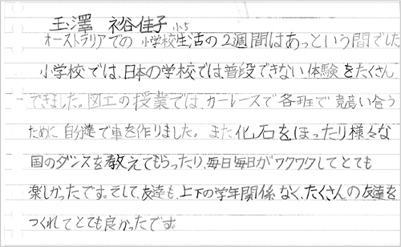 玉澤 裕佳子 小5
オーストラリアでの小学校生活の2週間はあっという間でした
小学校では、日本の学校では普段できない体験をたくさん
できました。図工の授業では、カーレースで各班で競い合う
ために自分達で車を作りました。また化石をほったり様々な
国のダンスを教えてもらったり、毎日毎日がワクワクしてとても
楽しかったです。そして、友達も、上下の学年関係なく、たくさんの友達を
つくれてとても良かったです。